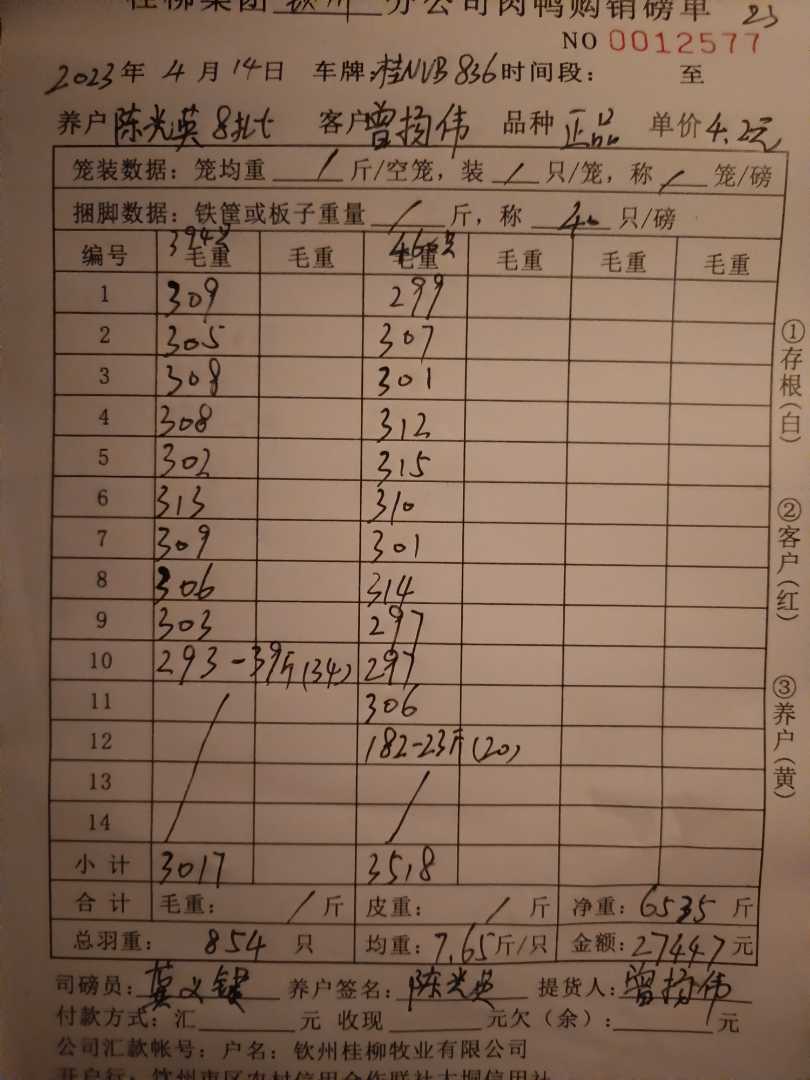 桂柳集团 钦州 分公司肉鸭购销磅单 23
NO 0012577
2023年 4 月 14日 车牌:桂NVB836时间段: 至
养户 陈光英 客户曾扬伟 品种 正品 单价4.2元
笼装数据:笼均重 / 斤/空笼,装 / 只/笼,称 / 笼/磅
捆脚数据:铁筐或板子重量 / 斤,称 40 只/磅
394只 460只
编号 毛重 毛重 毛重 毛重 毛重 毛重
1 309 299
2 305 307
3 308 301
4 308 312
5 302 315
6 313 310
7 309 301
8 306 314
9 303 297
10 293-39斤(34) 297
11 / 306
12 182-23斤(20)
13 /
14
小计 3017 3518
合计 毛重: / 斤 皮重: / 斤 净重:6535 斤
总羽重: 854 只 均重:7.65斤/只 金额:27447元
司磅员: 养户签名:陈光英 提货人:曾扬伟
付款方式:汇 元 收现 元欠(余): 元
公司汇款帐号:户名:钦州桂柳牧业有限公司
开户行:钦州市区农村信用合作联社大垌信用社
①存根(白)
②客户(红)
③养户(黄)